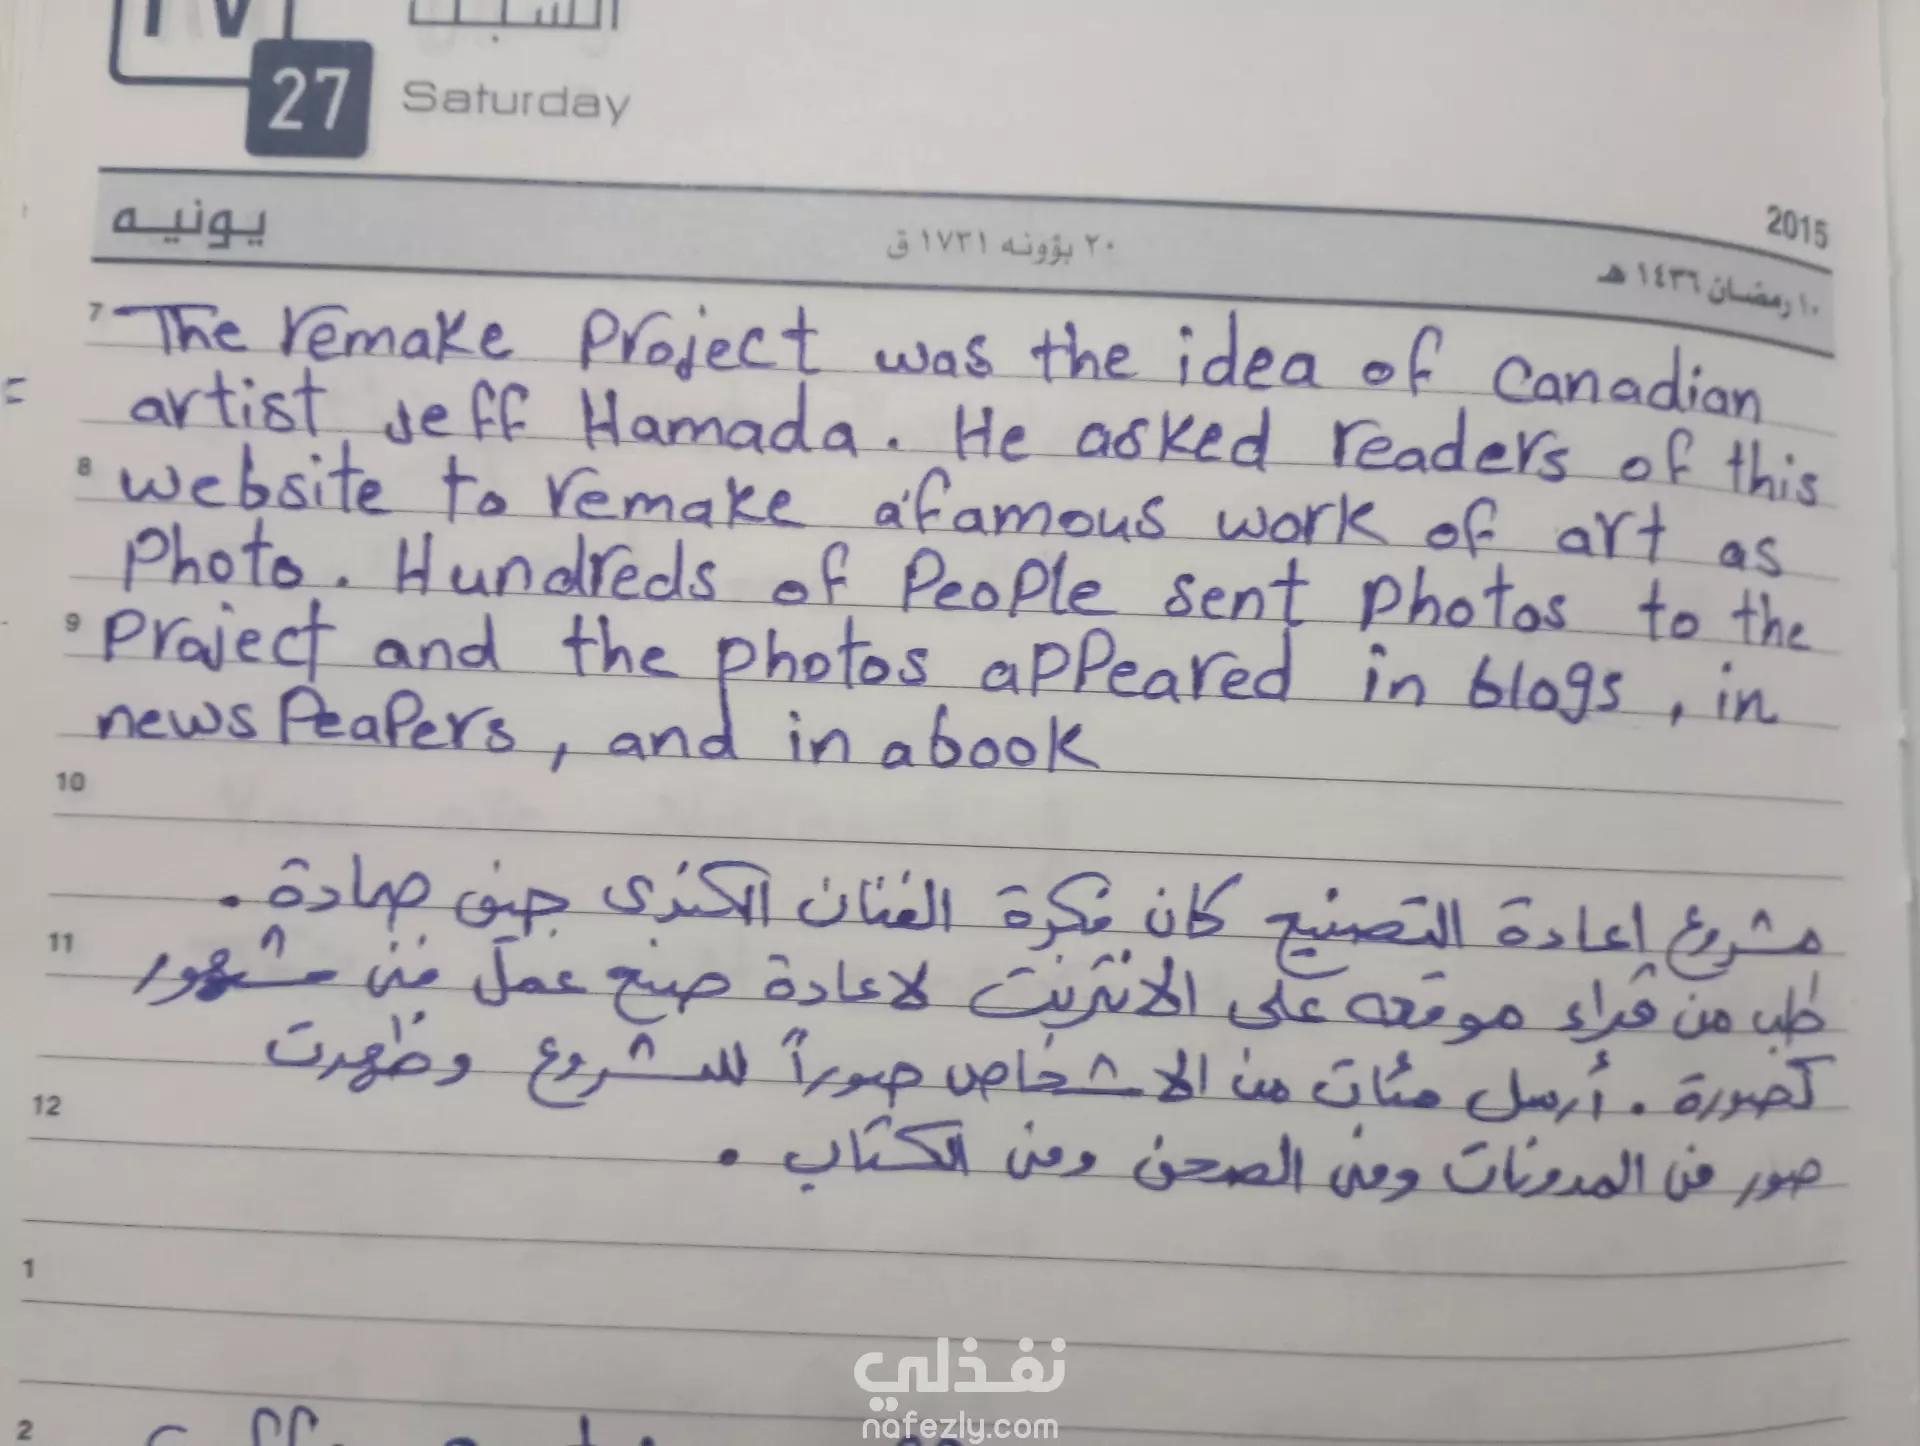 27
Saturday
2015
يونيه
٢٠ بؤونه ١٧٣١ ق
١٠ رمضان ١٤٣٦ هـ
7 The remake Project was the idea of Canadian
artist Jeff Hamada. He asked readers of this
8 website to remake a famous work of art as
Photo. Hundreds of People sent Photos to the
9 Project and the photos appeared in blogs, in
news Peapers, and in a book
10
مشروع اعادة التصنيع كان فكرة الفنان الكندى جيف حمادة .
11
طلب من قراء موقعه على الانترنت لاعادة صنع عمل فنى مشهور
كصورة . أرسل مئات من الاشخاص صوراً للمشروع وظهرت
12
صور فى المدونات وفى الصحف وفى الكتاب .
1
2
نفذلي
nafezly.com